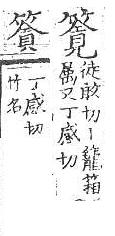 徒敢切丨籠箱
屬又丁感切
丁感切
竹名